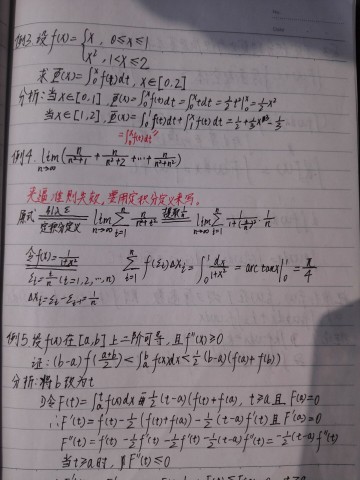 例3. 设f(x)={x, 0≤x≤1
x², 1<x≤2
求Φ(x)=∫₀ˣf(t)dt, x∈[0,2]
分析:当x∈[0,1], Φ(x)=∫₀ˣf(t)dt=∫₀ˣtdt=½t²|₀ˣ=½x²
当x∈[1,2], Φ(x)=∫₀¹f(t)dt+∫₁ˣf(t)dt=½+⅓x³-⅓
=∫₀ˣf(t)dt
例4. lim n→∞ (n/(n²+1)+n/(n²+2)+…+n/(n²+n²))
夹逼准则失效,要用定积分定义来写。
原式 引入Σ 定积分定义 lim n→∞ Σ i=1 n n/(n²+i²) 提取1/n lim n→∞ Σ i=1 n 1/(1+(i/n)²)·1/n
令f(x)=1/(1+x²)
ξᵢ=i/n (i=1,2,…,n) Σ i=1 n f(ξᵢ)Δxᵢ=∫₀¹dx/(1+x²)=arctanx|₀¹=π/4
Δxᵢ=ξᵢ-ξᵢ₋₁=1/n
例5 设f(x)在[a,b]上二阶可导,且f''(x)≥0
证:(b-a)f((a+b)/2)<∫ₐᵇf(x)dx<½(b-a)(f(a)+f(b))
分析:将b换为t
①令F(t)=∫ₐᵗf(x)dx-½(t-a)(f(t)+f(a)), t≥a且F(a)=0
∴F'(t)=f(t)-½(f(t)+f(a))-½(t-a)f'(t)且F'(a)=0
F''(t)=f'(t)-½f'(t)-½f'(t)-½(t-a)f''(t)=-½(t-a)f''(t)
当t≥a时,F''(t)≤0